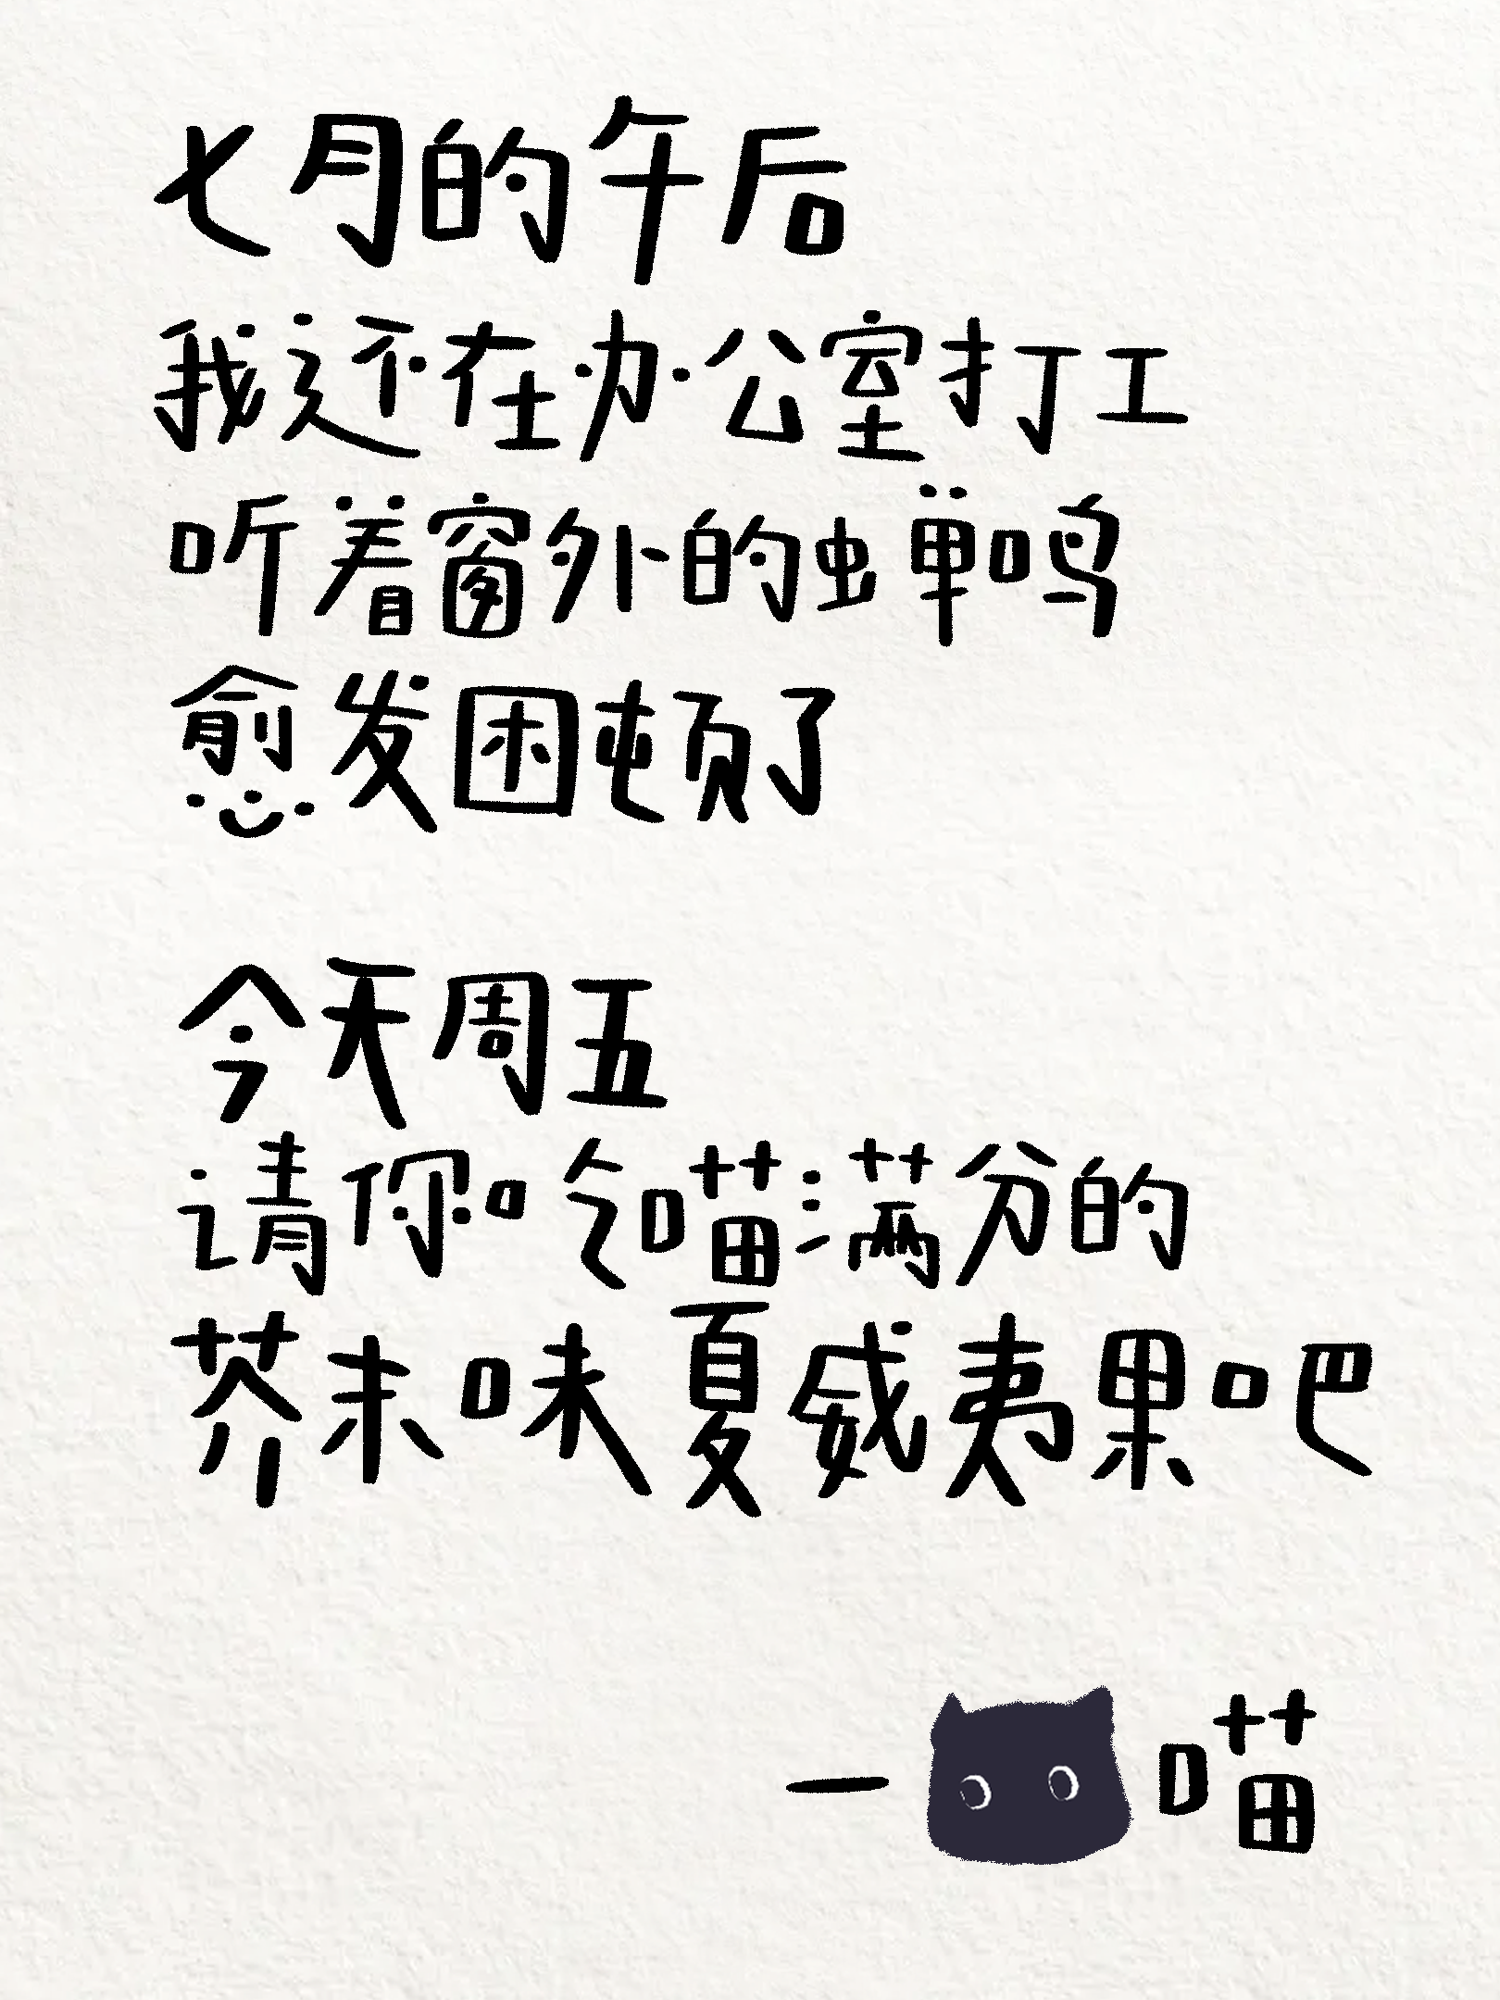 七月的午后
我还在办公室打工
听着窗外的蝉鸣
愈发困顿了
今天周五
请你吃喵满分的
芥末味夏威夷果吧
—喵